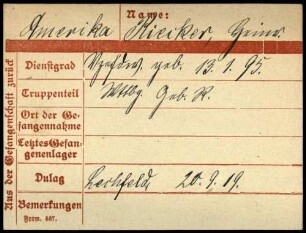 Name:
Amerika Kieker, Heinr.
Dienstgrad Vzfdw. geb. 13.1.95.
Truppenteil Wttbg. Geb. R.
Ort der Gefangennahme
Letztes Gefangenenlager
Dulag Lechfeld, 20.9.19.
Bemerkungen
Form. 687.
Aus der Gefangenschaft zurück